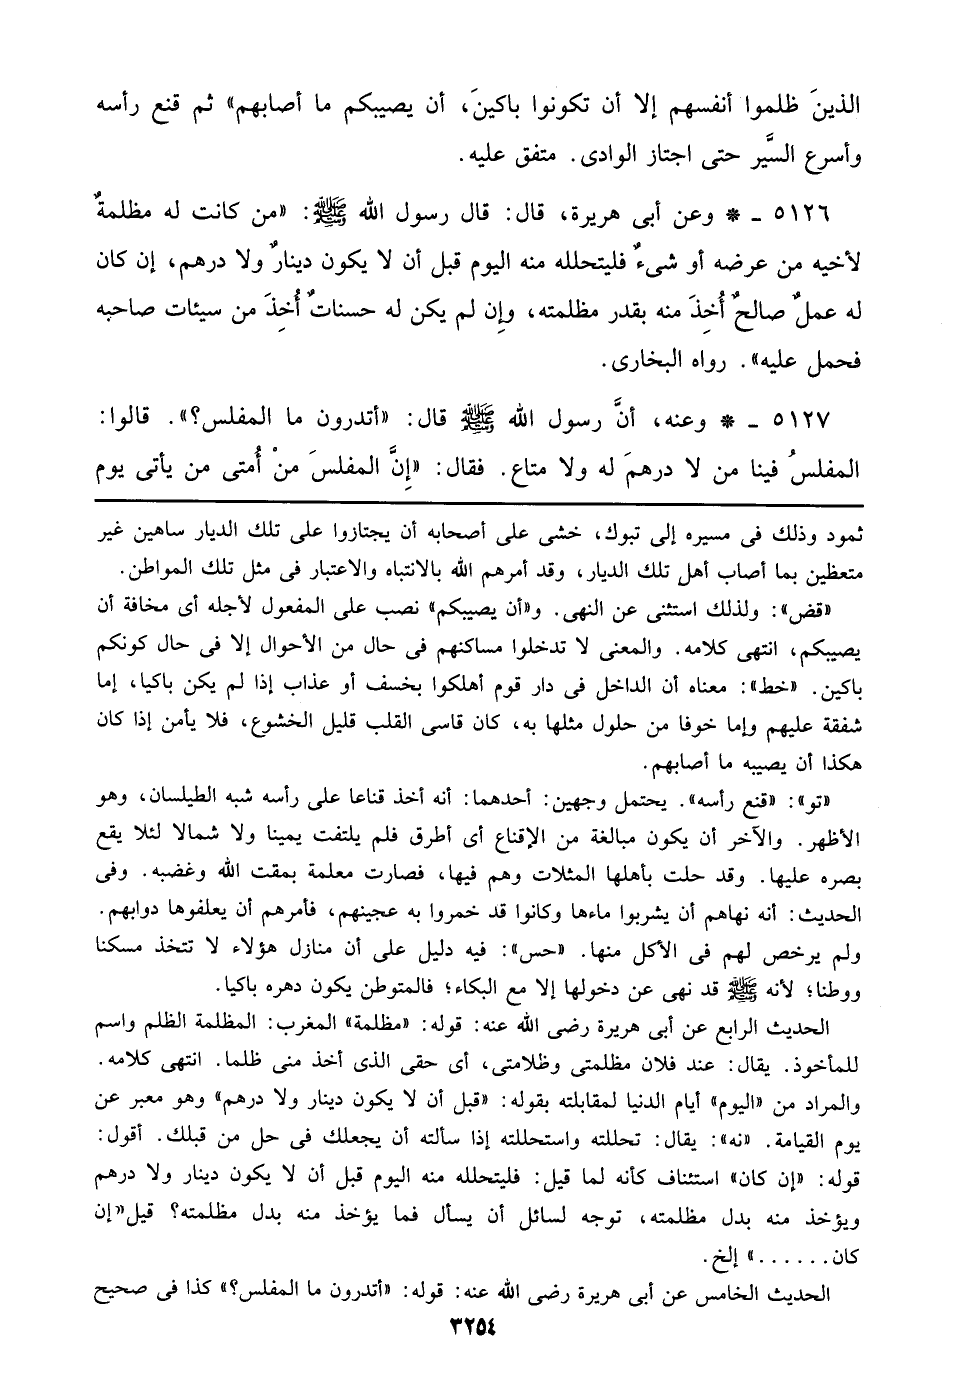 الذينَ ظلموا أنفسهم إلا أن تكونوا باكينَ، أن يصيبكم ما أصابهم» ثم قنع رأسه
وأسرع السَّير حتى اجتاز الوادى. متفق عليه.
٥١٢٦ ـ * وعن أبى هريرة، قال: قال رسول الله ﷺ: «من كانت له مظلمةٌ
لأخيه من عرضه أو شىءٌ فليتحلله منه اليوم قبل أن لا يكون دينارٌ ولا درهم، إن كان
له عملٌ صالحٌ أُخِذَ منه بقدر مظلمته، وإن لم يكن له حسناتٌ أُخِذَ من سيئات صاحبه
فحمل عليه». رواه البخارى.
٥١٢٧ ـ * وعنه، أنَّ رسول الله ﷺ قال: «أتدرون ما المفلس؟». قالوا:
المفلسُ فينا من لا درهمَ له ولا متاع. فقال: «إنَّ المفلسَ منْ أُمتى من يأتى يوم
ثمود وذلك فى مسيره إلى تبوك، خشى على أصحابه أن يجتازوا على تلك الديار ساهين غير
متعظين بما أصاب أهل تلك الديار، وقد أمرهم الله بالانتباه والاعتبار فى مثل تلك المواطن.
«قض»: ولذلك استثنى عن النهى. و«أن يصيبكم» نصب على المفعول لأجله أى مخافة أن
يصيبكم، انتهى كلامه. والمعنى لا تدخلوا مساكنهم فى حال من الأحوال إلا فى حال كونكم
باكين. «خط»: معناه أن الداخل فى دار قوم أهلكوا بخسف أو عذاب إذا لم يكن باكيا، إما
شفقة عليهم وإما خوفا من حلول مثلها به، كان قاسى القلب قليل الخشوع، فلا يأمن إذا كان
هكذا أن يصيبه ما أصابهم.
«تو»: «قنع رأسه». يحتمل وجهين: أحدهما: أنه أخذ قناعا على رأسه شبه الطيلسان، وهو
الأظهر. والآخر أن يكون مبالغة من الإقناع أى أطرق فلم يلتفت يمينا ولا شمالا لئلا يقع
بصره عليها. وقد حلت بأهلها المثلات وهم فيها، فصارت معلمة بمقت الله وغضبه. وفى
الحديث: أنه نهاهم أن يشربوا ماءها وكانوا قد خمروا به عجينهم، فأمرهم أن يعلفوها دوابهم.
ولم يرخص لهم فى الأكل منها. «حس»: فيه دليل على أن منازل هؤلاء لا تتخذ مسكنا
ووطنا؛ لأنه ﷺ قد نهى عن دخولها إلا مع البكاء؛ فالمتوطن يكون دهره باكيا.
الحديث الرابع عن أبى هريرة رضى الله عنه: قوله: «مظلمة» المغرب: المظلمة الظلم واسم
للمأخوذ. يقال: عند فلان مظلمتى وظلامتى، أى حقى الذى أخذ منى ظلما. انتهى كلامه.
والمراد من «اليوم» أيام الدنيا لمقابلته بقوله: «قبل أن لا يكون دينار ولا درهم» وهو معبر عن
يوم القيامة. «نه»: يقال: تحللته واستحللته إذا سألته أن يجعلك فى حل من قبلك. أقول:
قوله: «إن كان» استئناف كأنه لما قيل: فليتحلله منه اليوم قبل أن لا يكون دينار ولا درهم
ويؤخذ منه بدل مظلمته، توجه لسائل أن يسأل فما يؤخذ منه بدل مظلمته؟ قيل«إن
كان......» إلخ.
الحديث الخامس عن أبى هريرة رضى الله عنه: قوله: «أتدرون ما المفلس؟» كذا فى صحيح
٣٢٥٤